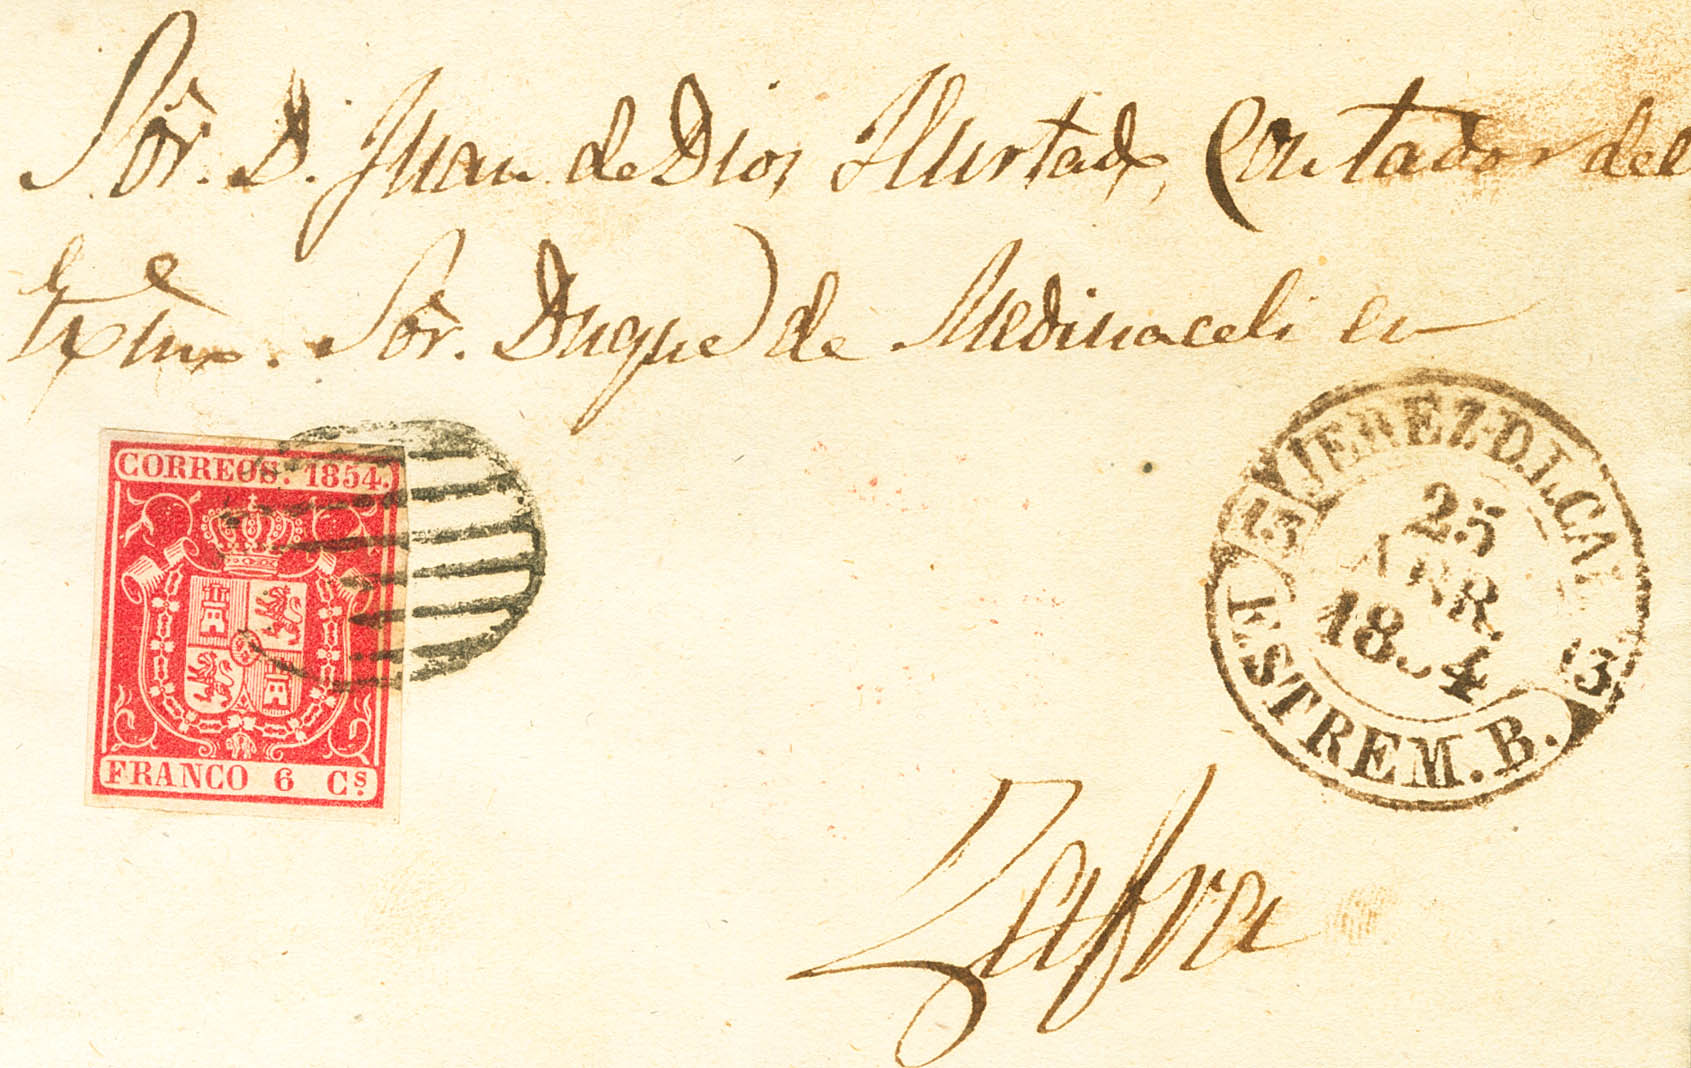 Sor. D. Juan de Dios Hurtado, Contador del
Exmo. Sor. Duque de Medinaceli en
CORREOS. 1854.
FRANCO 6 Cs.
JEREZ-D.L.CA
5 3
25
ABR.
1854
ESTREM.B.
Zafra